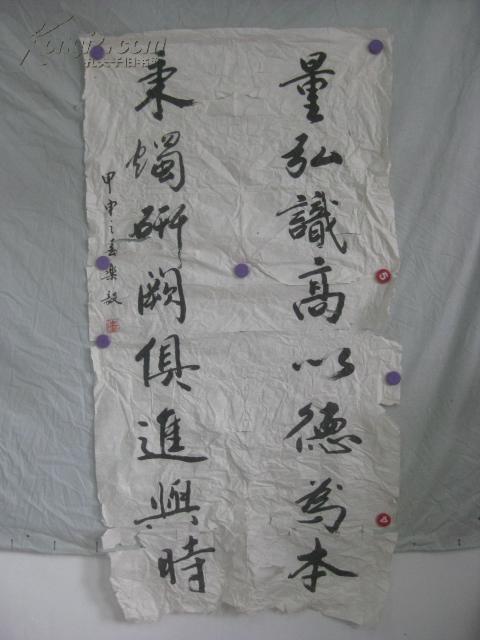 量弘識高以德為本
秉燭研闕俱進興時
甲申之春樂毅
Kongfz.com
孔夫子旧书网
5
4